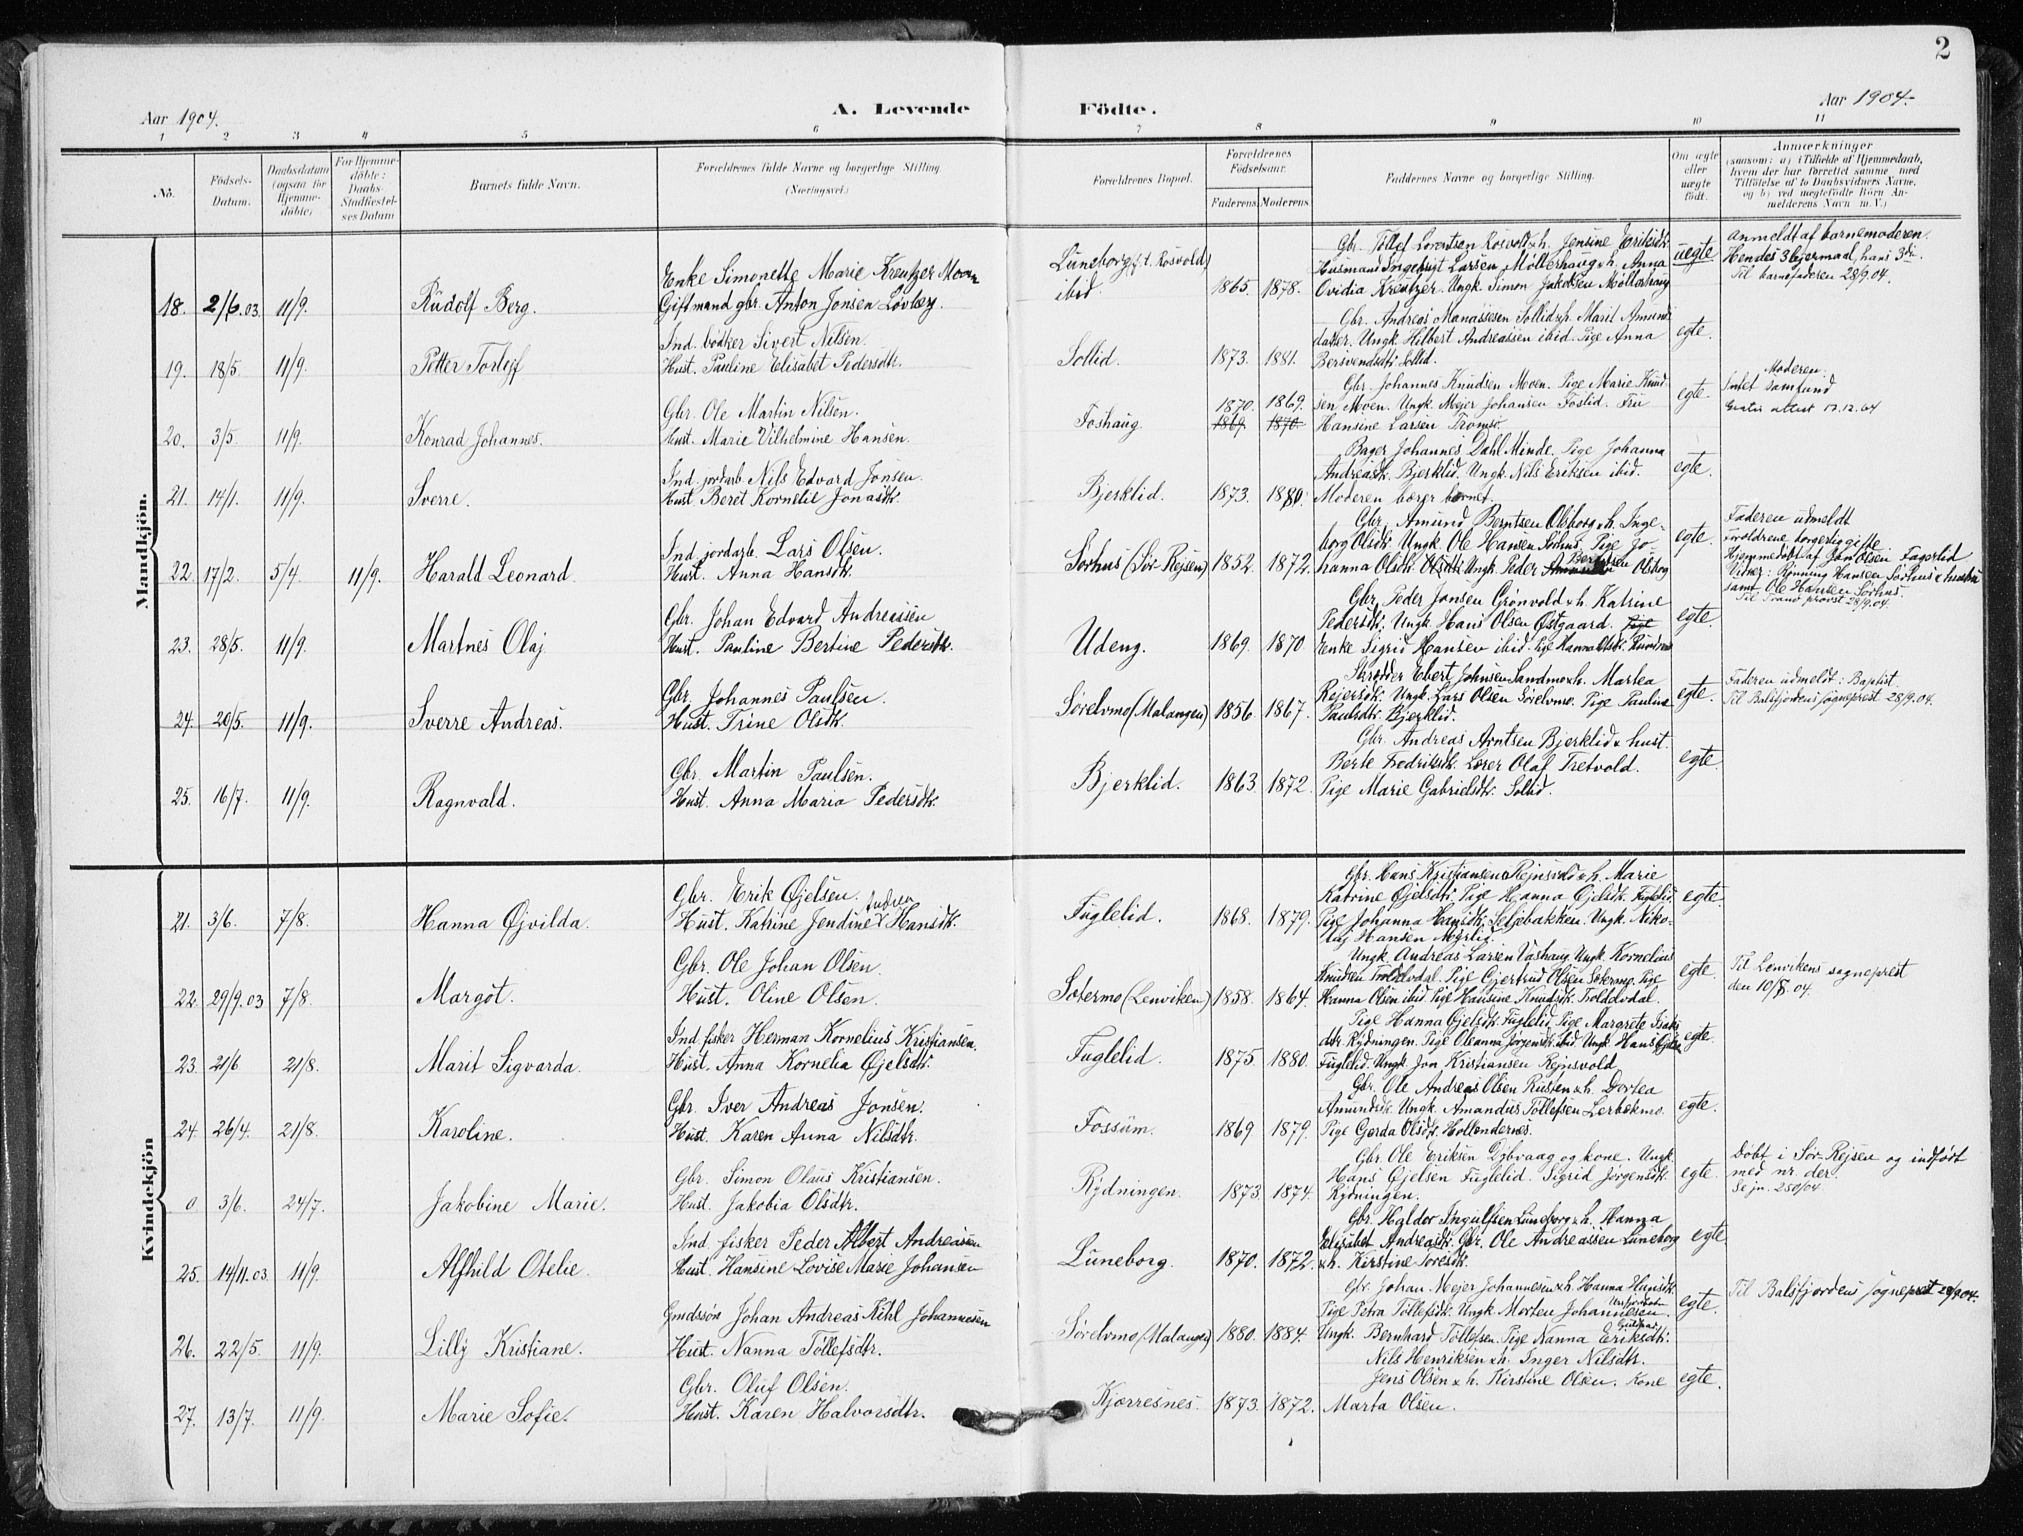 2
Aar 1904.
A. Levende
Födte.
Aar 1904.
1 2 3 4 5 6 7 8 9 10 11
No.
Födsels-Datum.
Daabsdatum (ogsaa for Hjemme-döbte)
For Hjemme-döbte: Daabs-Stadfæstel-ses Datum
Barnets fulde Navn.
Forældrenes fulde Navne og borgerlige Stilling.
(Næringsvei.)
Forældrenes Bopæl.
Forældrenes Födselsaar.
Faderens Moderens
Faddernes Navne og borgerlige Stilling.
Om ægte eller uægte födt.
Anmærkninger
(saasom: a) i Tilfælde af Hjemmedaab,
hvem der har forrettet samme, med
Tilföielse af to Daabsvidners Navne,
og b) ved uægtefödte Börn An-
melderens Navn m. V.)
Mandkjön.
18. 2/6.03 11/9. Rudolf Berg.
Enke Simonette Marie Kreutzer Moen
Gift mand gbr. Anton Jonsen Lövberg.
Luneborg (f. t. Rosvold)
ibid. 1865. 1878.
Gbr. Tollef Lorentsen Rosvold & h. Jensine Eriksdtr.
Husmand Ingebrigt Larsen Möllerhaug & h. Anna
Ovidia Kreutzer. Ungk. Simon Jakobsen Möllerhaug
uegte
Anmeldt af barnemoderen.
Hendes 3 lejermaal, hans 3di
Til barnefaderen 28/9.04.
19. 18/5 11/9. Petter Torleif
Ind. bödker Sivert Nilsen.
Hust. Pauline Elisabet Pedersdtr.
Sollid. 1873. 1881.
Gbr. Andreas Manassesen Sollid & h. Marit Amund-
datter. Ungk. Hilbert Andreassen ibid. Pige Anna
Bersvendsdtr. Sollid.
egte.
20. 3/5. 11/9. Konrad Johannes.
Gbr. Ole Martin Nilsen.
Hust. Marie Vilhelmine Hansen.
Foshaug.
1870. 1869.
1869 1870
Gbr. Johannes Knudsen Moen. Pige Marie Knud-
sen Moen. Ungk. Mejer Johansen Foslid. Fru
Hansine Larsen Tromsö.
egte.
Moderen.
Intet samfund
Gratis attest 17.12.64
21. 14/1. 11/9. Sverre.
Ind. jordarb. Nils Edvard Jonsen.
Hust. Beret Kornelie Jonasdtr.
Bjerklid. 1873. 1880.
Bager Johannes Dahl Minde. Pige Johanna
Andreasdtr. Bjerklid. Ungk. Nils Eriksen ibid.
Moderen bærer barnet.
egte.
22. 17/2. 5/4 11/9. Harald Leonard.
Ind. jordarb. Lars Olsen.
Hust. Anna Hansdtr.
Sörhus (Sör-Rejsen) 1852. 1872.
Gbr. Amund Berntsen Olsborg & h. Inge-
borg Olsdtr. Ungk. Ole Hansen Sörhus. Pige Jo-
hanna Olsdtr. Ungk. Peder Berntsen Olsborg
egte.
Faderen udmeldt
Foreldrene borgerlig gifte
Hjemmedöbt af Jon Olsen Fagerlid
Vitner: Rönning Hansen Sörhus & hustru
samt Ole Hansen Sörhus.
Til Tranö provst 28/9.04.
23. 28/5. 11/9. Martnes Olaj
Gbr. Johan Edvard Andreassen
Hust. Pauline Bertine Pedersdtr.
Udeng. 1869. 1870
Gbr. Peder Jonsen Grönvold & h. Katrine
Pedersdtr. Ungk. Hans Olsen Östgaard. Pige
Enke Sigrid Hansen ibid. Pige Hanna Olsdtr.
egte.
24. 20/5. 11/9. Sverre Andreas.
Gbr. Johannes Paulsen.
Hust. Trine Olsdtr.
Sörelvmo (Malangen) 1856 1867.
Skrædder Ebert Johnsen Sandmo & h. Martea
Rejersdtr. Ungk. Lars Olsen Sörelvmo. Pige Pauline
Paulsdtr. Bjerklid.
egte.
Faderen udmeldt: Baptist.
Til Balsfjordens sogneprest 28/9.04.
25. 16/7. 11/9. Ragnvald.
Gbr. Martin Paulsen.
Hust. Anna Maria Pedersdtr.
Bjerklid. 1863. 1872.
Gbr. Andreas Arntsen Bjerklid & hust.
Berte Fredriksdtr. Lærer Olaf Tretvold.
Pige Marie Gabrielsdtr. Sollid.
egte.
Kvindekjön
21. 3/6. 7/8. Hanna Öjvilda.
Gbr. Erik Öjelsen.
Hust. Katrine Jendine Andrea Hansdtr.
Fuglelid. 1868. 1879.
Gbr. Hans Kristiansen Rejnsvold & h. Marie
Katrine Öjelsdtr. Pige Hanna Öjelsdtr. Fuglelid.
Pige Johanna Hansdtr. Seljebakken. Ungk. Niko-
laj Hansen Myrlid.
egte.
22. 29/9.03 7/8. Margot.
Gbr. Ole Johan Olsen.
Hust. Oline Olsen.
Sætermo (Lenviken) 1858. 1864.
Ungk. Andreas Larsen Vashaug Ungk. Kornelius
Knudsen Troldelvdal. Pige Gjertrud Olsen Setermo. Pige
Hanna Olsen ibid Pige Hansine Knudsdtr. Troldelvdal.
egte.
Til Lenvikens sogneprest
den 10/8.04.
23. 21/6 21/8. Marit Sigvarda.
Ind. fisker Herman Kornelius Kristiansen.
Hust. Anna Kornelia Öjelsdtr.
Fuglelid. 1875. 1880.
Pige Hanna Öjelsdtr. Fuglelid. Pige Margrete Isaks
dtr. Rydningen. Pige Oleanna Jörgensdtr. ibid. Ungk. Hans Öjelsen
Fuglelid. Ungk. Jon Kristiansen Rejnsvold
egte.
24. 26/4. 21/8. Karoline.
Gbr. Iver Andreas Jonsen.
Hust. Karen Anna Nilsdtr.
Fossum. 1869 1879.
Gbr. Ole Andreas Olsen Rusten & h. Dortea
Amundsdtr. Ungk. Amandus Tollefsen Lerbækmo.
Pige Gerda Olsdtr. Hollendernes.
egte.
0. 3/6. 24/7. Jakobine Marie.
Gbr. Simon Olaus Kristiansen.
Hust. Jakobia Olsdtr.
Rydningen. 1873. 1874.
Gbr. Ole Eriksen Dybvaag og kone. Ungk.
Hans Öjelsen Fuglelid. Sigrid Jörgensdtr.
Rydningen.
egte.
Döbt i Sör-Rejsen og indfört
med nr. der.
Se jn. 250/04.
25. 14/11.03. 11/9. Alfhild Otelie.
Ind. fisker Peder Albert Andreasen
Hust. Hansine Lovise Marie Johansen
Luneborg. 1870. 1872.
Gbr. Haldor Ingulfsen Luneborg & h. Hanna
Elisabet Andreasdtr. Gbr. Ole Andreassen Luneborg
& h. Kirstine Soresdtr.
egte
26. 22/5. 11/9. Lilly Kristiane.
Gaardssön Johan Andreas Kihl Johannesen
Hust. Nanna Tollefsdtr.
Sörelvmo (Malangen) 1880. 1884.
Gbr. Johan Mejer Johannesen & h. Hanna Hansdtr.
Pige Petra Tollefsdtr. Ungk. Morten Johannesen.
Ungk. Bernhard Tollefsen. Pige Nanna Eriksdtr.
egte.
Til Balsfjordens sogneprest 28/9.04.
27. 13/7. 11/9. Marie Sofie.
Gbr. Oluf Olsen.
Hust. Karen Halvorsdtr.
Kjerresnes. 1873. 1872.
Nils Henriksen & h. Inger Nilsdtr.
Jens Olsen & h. Kirstine Olsen. Kone
Marta Olsen.
egte.